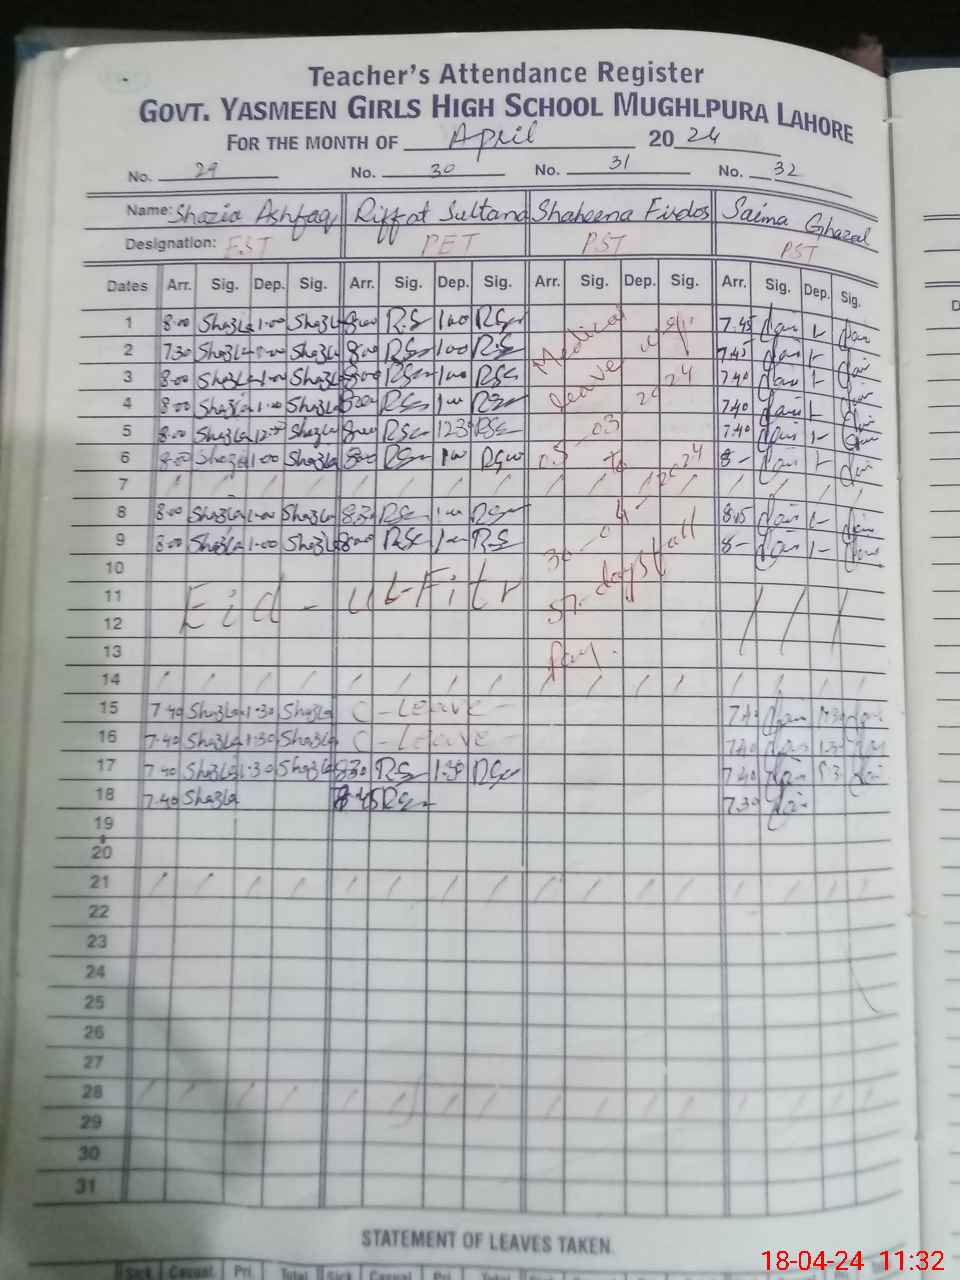 Teacher's Attendance Register
GOVT. YASMEEN GIRLS HIGH SCHOOL MUGHLPURA LAHORE
FOR THE MONTH OF April 2024
No. 29 No. 30 No. 31 No. 32
Name: Shazia Ashfaq Riffat Sultana Shaheena Firdos Saima Ghazal
Designation: EST PET PST PST
Dates Arr. Sig. Dep. Sig. Arr. Sig. Dep. Sig. Arr. Sig. Dep. Sig. Arr. Sig. Dep. Sig.
1 8.00 Shazia 1.00 Shazia 8.00 R.S 1.00 RS Medical 7.45
2 7.30 Shazia Shazia 8.00 RS 1.00 R.S leave 7.45
3 8.00 Shazia 1.00 Shazia 8.00 RS 1.00 RS 7.40
4 8.00 Shazia 1.00 Shazia 8.00 RS 1.00 RS 2024 7.40
5 8.00 Shazia Shazia 8.00 RS 12.30 RS 03 7.40
6 8.00 Shazia 1.00 Shazia 8.00 RS 1.00 RS 05 to 8-
7
8 8.00 Shazia 1.00 Shazia 8.30 RS 1.00 RS 4-2024 8.15
9 8.00 Shazia 1.00 Shazia 8.00 RS RS 30-0 8-
10
11 Eid-ul-Fitr 57-days full
12
13 pay.
14
15 7.40 Shazia 1.30 Shazia C-Leave- 7.40
16 7.40 Shazia 1.30 Shazia C-Leave- 7.40 1.30
17 7.40 Shazia 1.30 Shazia 8.30 RS 1.30 RS 7.40
18 7.40 Shazia RS 7.30
19
20
21
22
23
24
25
26
27
28
29
30
31
STATEMENT OF LEAVES TAKEN
Sick Casual Pri. Total Sick Casual Pri. Total Sick
18-04-24 11:32